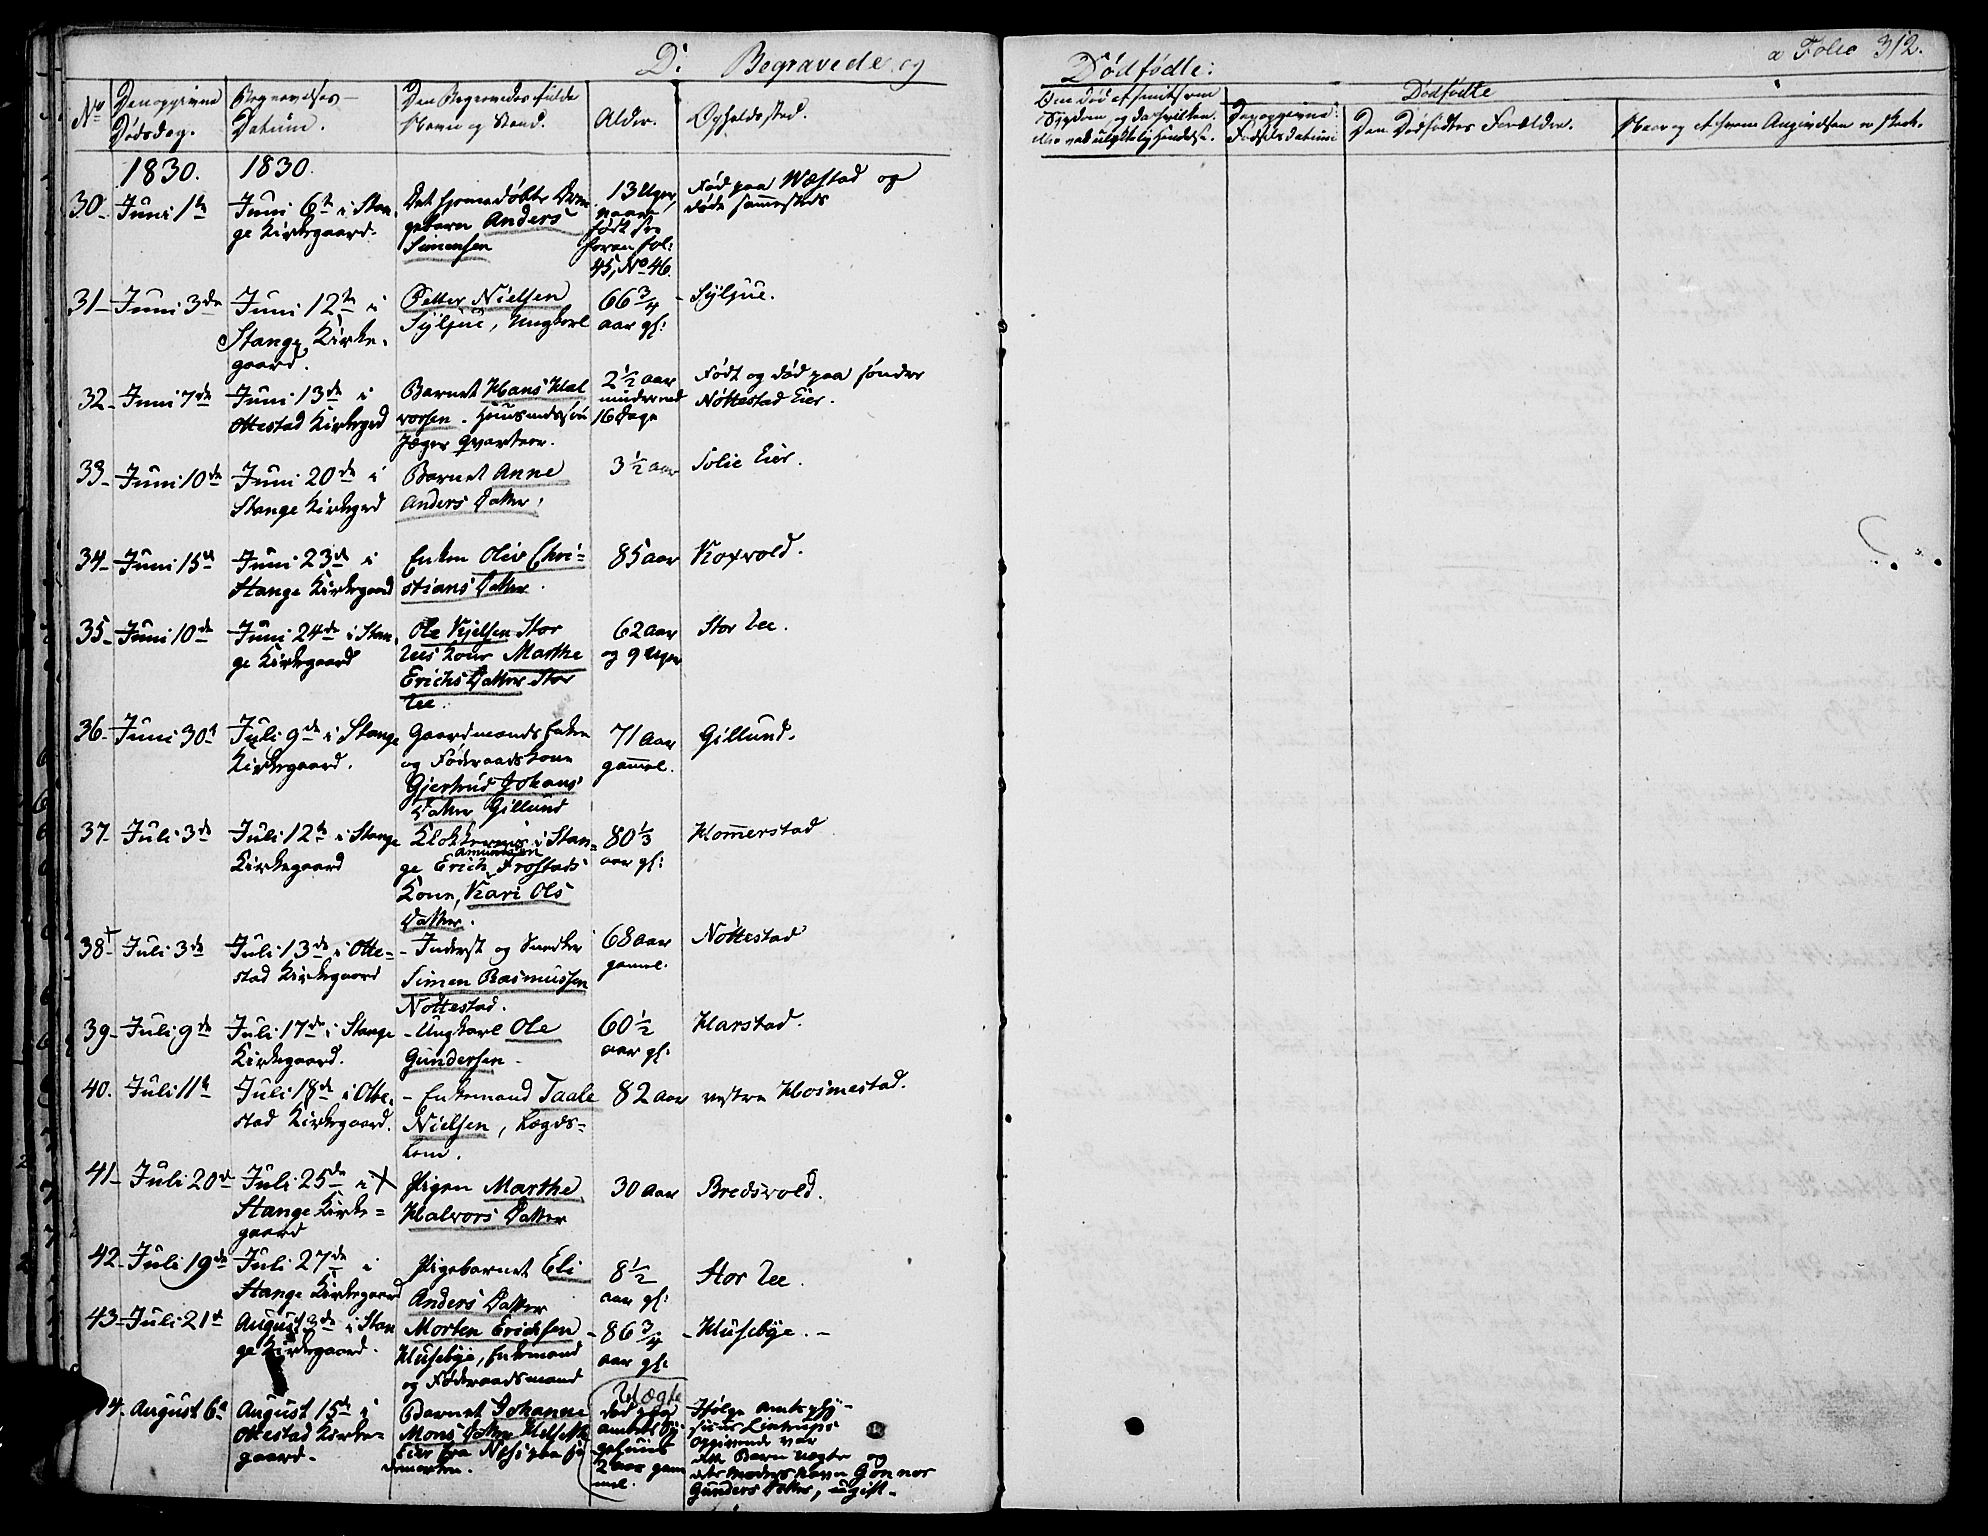 D: Begravede og
Dødfødte:
a Folio 312.
No
Den opgivne Dødsdag.
Begravelses-Datum.
Den Begravedes fulde Navn og Stand.
Alder.
Opholdssted.
Dødfødte
Den Dødfødtes Forældre.
1830. 1830.
30. Juni 1te
Juni 6te i Stan-
ge Kirkegaard.
Det hjemedøbte Dren-
gebarn Anders
Simensen
13 Uger,
født
foran fol:
45, No 46.
Fød paa Wæstad og
døde sammesteds
31- Juni 3de
Juni 12te i
Stange Kirke-
gaard.
Petter Nielsen
Syljue, Ungkarl
66 3/4
aar gl:
Syljue.
32- Juni 7de
Juni 13de i
Ottestad Kirkegrd
Barnet Hans Hal
vorsen. Huusmandssøn
Jæger Qvarteer.
2 1/2 aar
mindre end
16 Dage
Født og død paa søndre
Nøttestad Eier.
33- Juni 10de
Juni 20de i
Stange Kirkegrd
Barnet Anne
Anders Datter.
3 1/2 aar
Solie Eier.
34- Juni 15de
Juni 23de i
Stange Kirkegaard
Enken Oliv Chri-
stians Datter.
85 aar
Roxvold.
35- Juni 10de
Juni 24de i Stan-
ge Kirkegaard
Ole Kjelsen Stor
Lees Kone Marthe
Erichs Datter Stor
Lee.
62 aar
og 9 Uger
Stor Lee.
36- Juni 30te
Juli 9de i Stange
Kirkegaard.
Gaardmands Enken
og Føderaads Kone
Gjertrud Johans
Datter Gillund
71 aar
gammel.
Gillund.
37- Juli 3de
Juli 12te i Stange
Kirkegaard
Klokkerens i Stan-
ge Erich Amundsen Frøstads
Kone, Kari Ols
Datter.
80 1/3
aar gl:
Hommerstad
38- Juli 3de
Juli 13de i Otte-
stad Kirkegaard
- Inderst og Snedker
Simen Rasmussen
Nøttestad.
68 aar
gammel.
Nøttestad
39- Juli 9de
Juli 17de i Stange
Kirkegaard.
- Ungkarl Ole
Gundersen -
60 1/2
aar gl:
Harstad.
40. Juli 11te
Juli 18de i Otte-
stad Kirkegaard.
- Enkemand Taale
Nielsen, Lægds-
lem.
82 aar
vestre Hosmestad.
41- Juli 20de
Juli 25de i
Stange Kirke-
gaard
Pigen Marthe
Halvors Datter
30 aar
Bredsvold.
42- Juli 19de
Juli 27de i
Stange Kirkegaard
Pigebarnet Eli
Anders Datter
8 1/2
aar gl:
Stor Lee.
43- Juli 21te
August 3de i Stan
ge Kirkegaard.
Morten Erichsen
Husebye, Enkemand
og Føderaadsmand
- 86 3/4
aar gl:
- Husebye. -
44. August 6te
August 15de i
Ottestad Kirke-
gaard.
Barnet Johanne
Mons Datter
Uægte
død paa
Amtets Sy-
gehuus
2 aar gam
mel.
Ifølge Amtsphy-
sicus
Opgivende var
dette Barn uægte og
dets Moders Navn Gonnor
Gunders Datter, ugift.